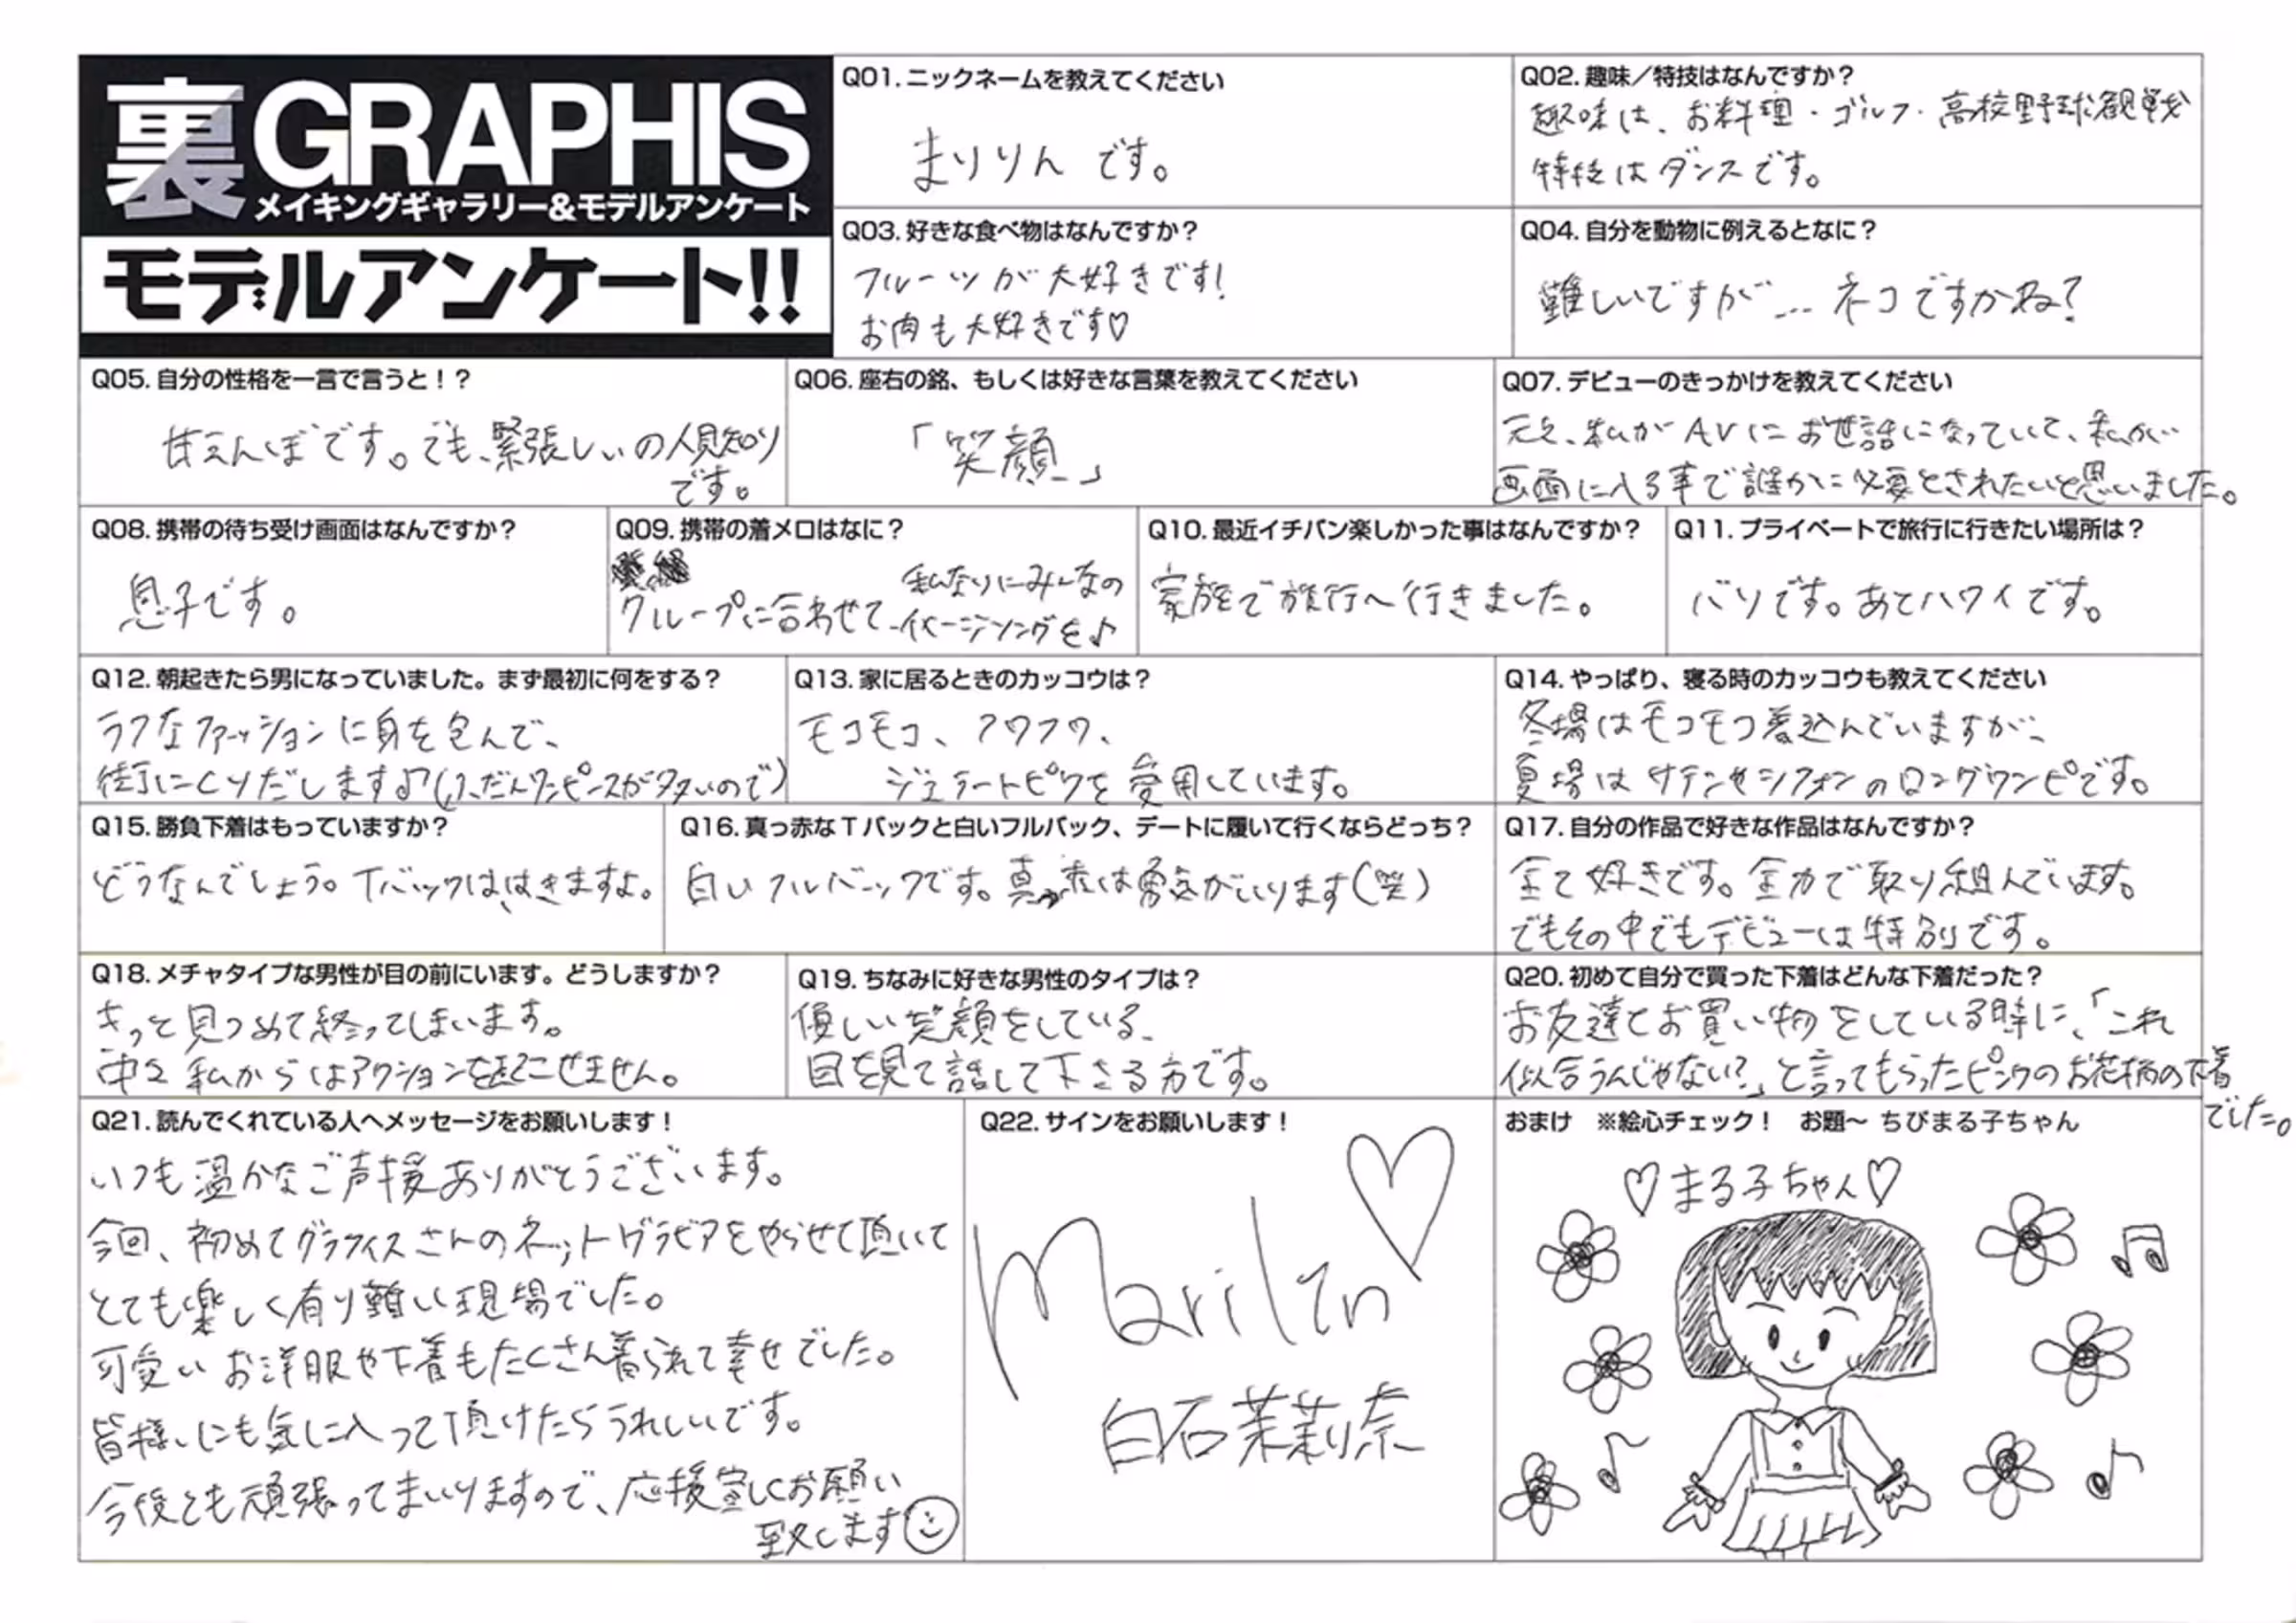 裏GRAPHIS
メイキングギャラリー&モデルアンケート
モデルアンケート!!
Q01. ニックネームを教えてください
まりりん です。
Q02. 趣味／特技はなんですか？
趣味は、お料理・ゴルフ・高校野球観戦
特技はダンスです。
Q03. 好きな食べ物はなんですか？
フルーツが大好きです!
お肉も大好きです♡
Q04. 自分を動物に例えるとなに？
難しいですが… ネコですかね?
Q05. 自分の性格を一言で言うと！？
甘えんぼです。でも、緊張しいの人見知り
です。
Q06. 座右の銘、もしくは好きな言葉を教えてください
「笑顔」
Q07. デビューのきっかけを教えてください
元々、私がAVにお世話になっていて、私が
画面に入る事で誰かに必要とされたいと思いました。
Q08. 携帯の待ち受け画面はなんですか？
息子です。
Q09. 携帯の着メロはなに？
私なりにみんなの
グループに合わせてイメージソングを♪
Q10. 最近イチバン楽しかった事はなんですか？
家族で旅行へ行きました。
Q11. プライベートで旅行に行きたい場所は？
バリです。あとハワイです。
Q12. 朝起きたら男になっていました。まず最初に何をする？
ラフなファッションに身を包んで、
街にくりだします♪(ふだんワンピースが多いので)
Q13. 家に居るときのカッコウは？
モコモコ、フワフワ、
ジェラートピケを愛用しています。
Q14. やっぱり、寝る時のカッコウも教えてください
冬場はモコモコ着込んでいますが、
夏場はサテンやシフォンのロングワンピです。
Q15. 勝負下着はもっていますか？
どうなんでしょう。Tバックは、はきますよ。
Q16. 真っ赤なTバックと白いフルバック、デートに履いて行くならどっち？
白いフルバックです。真っ赤は勇気がいります(笑)
Q17. 自分の作品で好きな作品はなんですか？
全て好きです。全力で取り組んでいます。
でもその中でもデビューは特別です。
Q18. メチャタイプな男性が目の前にいます。どうしますか？
きっと見つめて終ってしまいます。
中々私からはアクションを起こせません。
Q19. ちなみに好きな男性のタイプは？
優しい笑顔をしている、
目を見て話して下さる方です。
Q20. 初めて自分で買った下着はどんな下着だった？
お友達とお買い物をしている時に、「これ
似合うんじゃない?」と言ってもらったピンクのお花柄の下着
でした。
Q21. 読んでくれている人へメッセージをお願いします！
いつも温かなご声援ありがとうございます。
今回、初めてグラフィスさんのネットグラビアをやらせて頂いて
とても楽しく有り難い現場でした。
可愛いお洋服や下着もたくさん着られて幸せでした。
皆様にも気に入って頂けたらうれしいです。
今後とも頑張ってまいりますので、応援宜しくお願い
致します
Q22. サインをお願いします！
Marilin♡
白石茉莉奈
おまけ　※絵心チェック！　お題〜 ちびまる子ちゃん
♡まる子ちゃん♡